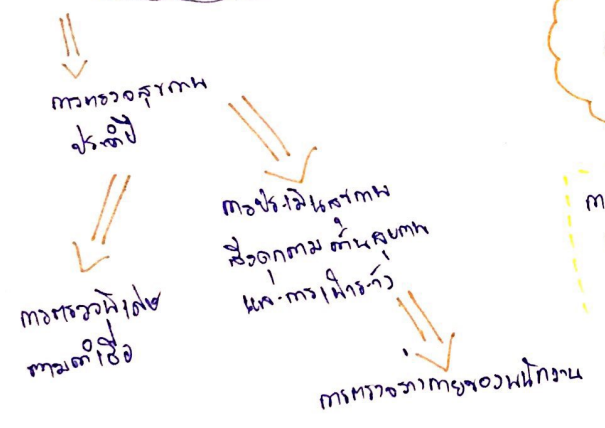 การตรวจสุขภาพ
ประจำปี
การประเมินสุขภาพ
สิ่งคุกคามด้านสุขภาพ
และการเฝ้าระวัง
การตรวจพิเศษ
ตามคำ
การตรวจร่างกายของพนักงาน
ก